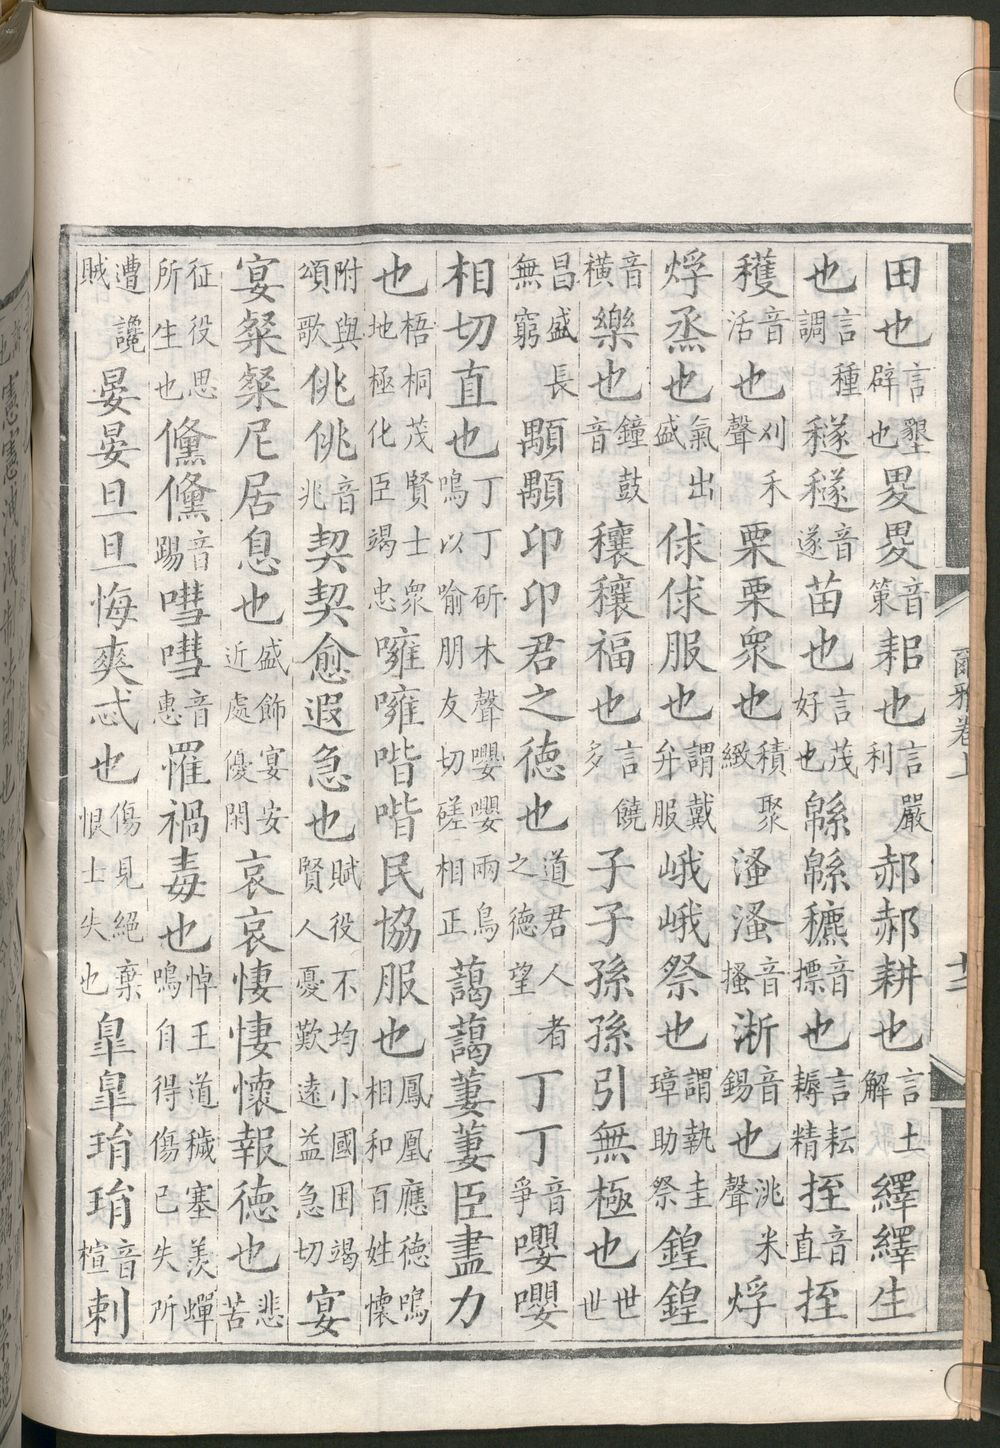 田也言墾辟也畟畟音策耜也言嚴利郝郝耕也言土解繹繹生
也言種調穟穟音遂苗也言茂好也緜緜穮音摽也言耘耨精挃音直挃
穫音活也刈禾聲栗栗衆也積聚緻溞溞音搔淅音錫也洮米聲烰
烰烝也氣出盛俅俅服也謂戴弁服峨峨祭也謂執圭璋助祭鍠鍠
音橫樂也鐘鼓音穰穰福也言饒多子子孫孫引無極也世世
昌盛長無窮顒顒卬卬君之德也道君人者之德望丁丁音爭嚶嚶
相切直也丁丁斫木聲嚶嚶兩鳥鳴以喻朋友切磋相正藹藹萋萋臣盡力
也梧桐茂賢士衆地極化臣竭忠噰噰喈喈民協服也鳳凰應德鳴相和百姓懷
附與頌歌佻佻音兆契契愈遐急也賦役不均小國困竭賢人憂歎遠益急切宴
宴粲粲尼居息也盛飾宴安近處優閑哀哀悽悽懷報德也悲苦
征役思所生也儵儵音踢嘒嘒音惠罹禍毒也悼王道穢塞羨蟬鳴自得傷己失所
遭讒賊晏晏旦旦悔爽忒也傷見絕棄恨士失也皐皐琄琄音楦刺
爾雅卷上 十二